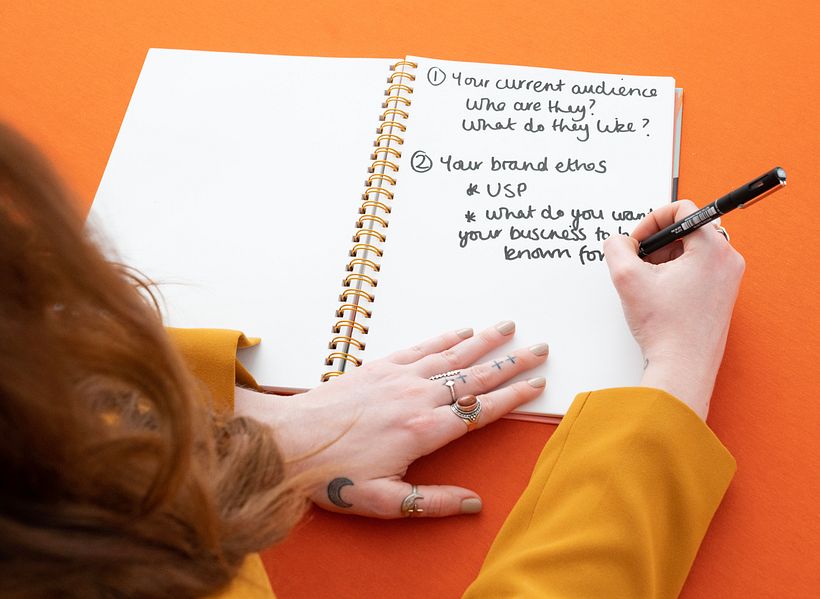 ① Your current audience
who are they?
What do they like?
② Your brand ethos
* USP
* what do you want
your business to
known for